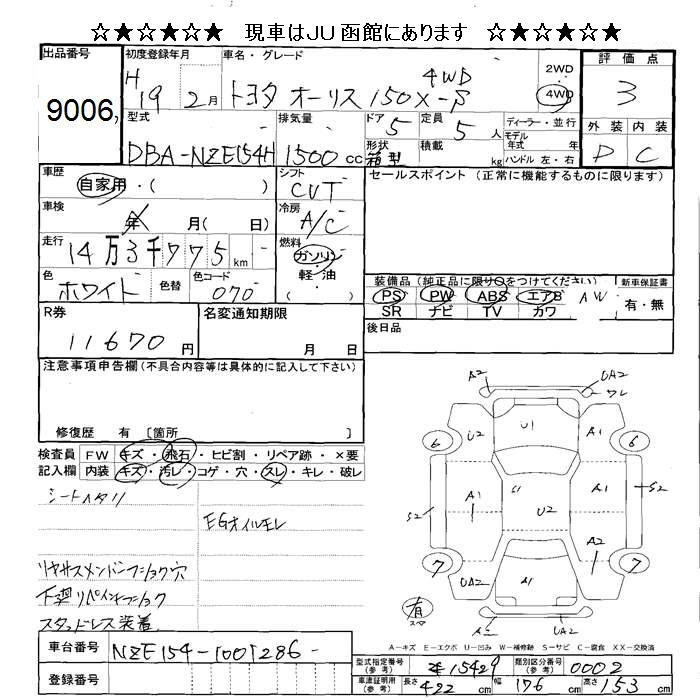 ☆★☆★☆ 現車はJU函館にあります ☆★☆★☆
出品番号 9006
初度登録年月 H19 2月
車名・グレード トヨタ オーリス 150X-S 4WD
2WD 4WD
評価点 3
外装 D 内装 C
型式 DBA-NZE154H
排気量 1500cc
ドア 5 形状 箱型
定員 5人 積載 kg
ディーラー・並行
モデル年式 年
ハンドル 左・右
車歴 自家用・( )
シフト CVT
セールスポイント (正常に機能するものに限ります)
車検 年 月( 日)
冷房 A/C
走行 14万3千775km
燃料 ガソリン・軽油 ( )
色 ホワイト 色替 色コード 070
装備品 (純正品に限り○をつけてください)
PS PW ABS エアB AW
SR ナビ TV カワ
新車保証書 有・無
R券 11670円
名変通知期限 月 日
後日品
注意事項申告欄(不具合内容等は具体的に記入して下さい)
修復歴 有 [箇所 ]
検査員記入欄
FW キズ・飛石・ヒビ割・リペア跡・×要
内装 キズ・汚レ・コゲ・穴・スレ・キレ・破レ
シートヘタリ
EGオイルモレ
リヤサスメンバーブショク穴
下廻リペイントブショク
スタッドレス装着
A2 UA2 ワレ
U2 U1 A1
6 6
S2 A1 S1 U2 A1 S2
A2
7 UA2 A1 7
有 スペア
A2 UA2
A-キズ E-エクボ U-凹み W-補修跡 S-サビ C-腐食 XX-交換済
車台番号 NZE154-1001286
登録番号
型式指定番号(参考) 15429
類別区分番号(参考) 0002
車庫証明用(参考) 長さ 422cm 幅 176cm 高さ 153cm